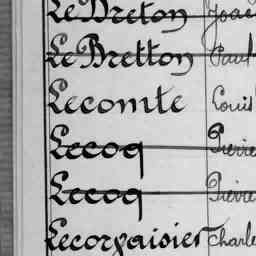 Le Breton Joac
Le Bretton Paul
Lecomte Louis
Lecoq Pierre
Lecoq Pierre
Lecorgaisier Charle